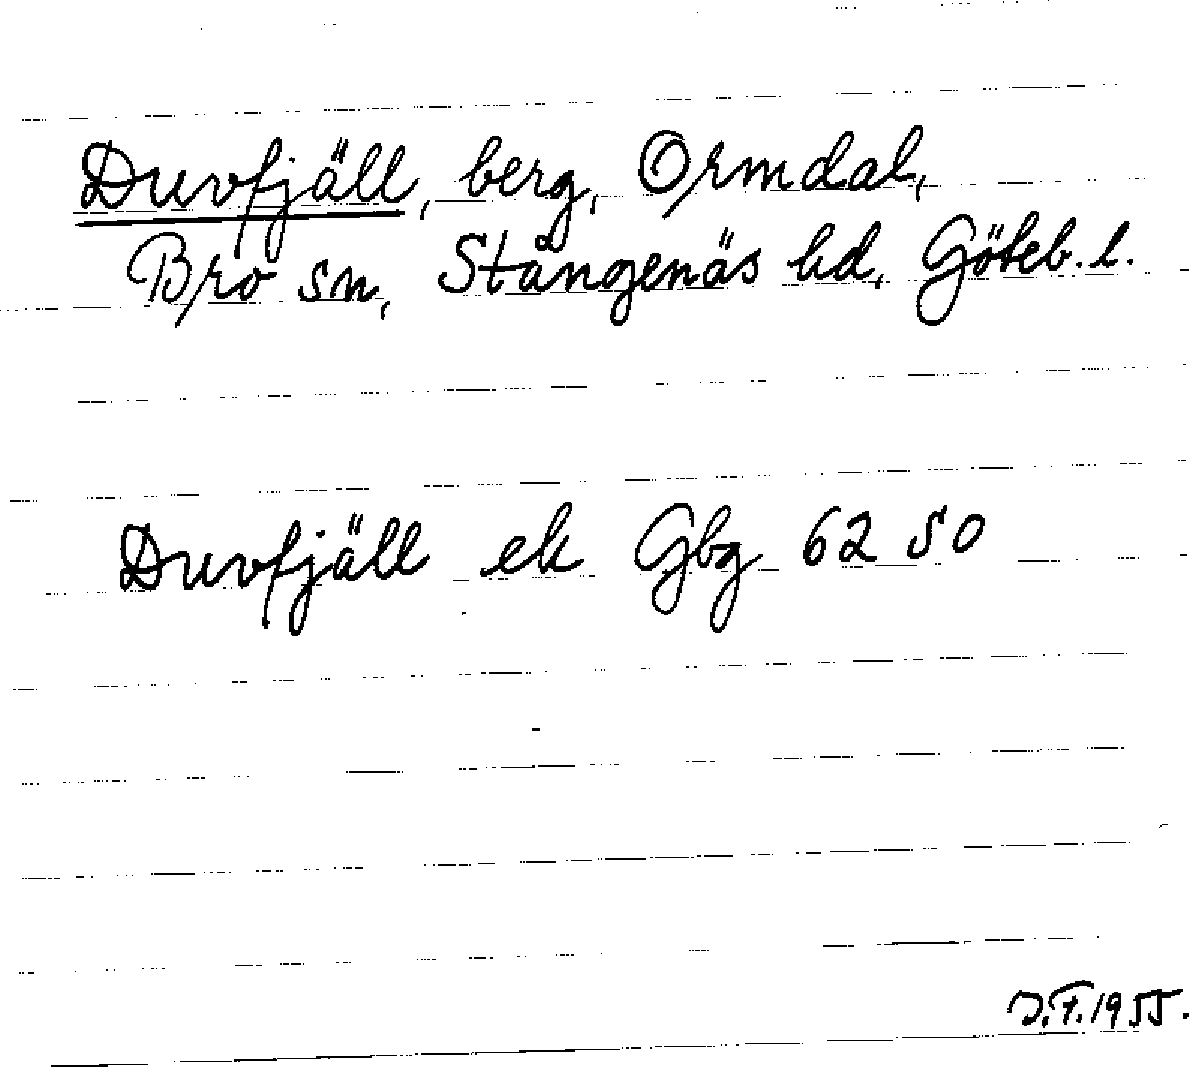 Duvfjäll, berg, Ormdal,
Bro sn, Stångenäs hd, Göteb. l.
Duvfjäll ek Gbg 62 50
J.F. 1955.